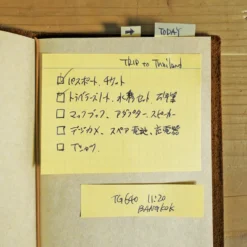 TODAY
TRIP to Thailand
パスポート、チケット
トラベラーズノート、水彩セット、お財布
マックブック、アダプター、スピーカー
デジカメ、スペア電池、充電器
Tシャツ
TG640 11:20
BANGKOK